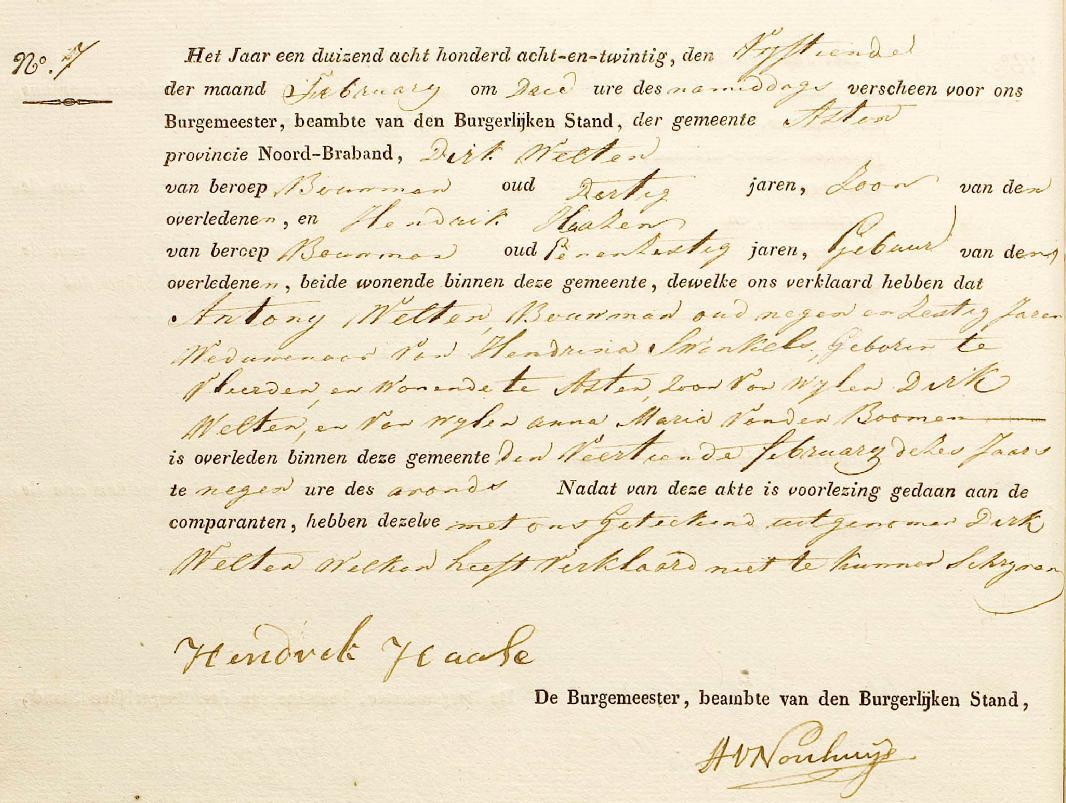 N.o 7
Het Jaar een duizend acht honderd acht-en-twintig, den Vyftiende
der maand February om Drie ure des namiddags verscheen voor ons
Burgemeester, beambte van den Burgerlijken Stand, der gemeente Asten
provincie Noord-Braband, Dirk Welten
van beroep Bouwman oud Dertig jaren, Zoon van den
overledenen, en Hendrik Haazen
van beroep Bouwman oud Eenenzestig jaren, Gebuur van den
overledenen, beide wonende binnen deze gemeente, dewelke ons verklaard hebben dat
Antony Welten, Bouwman oud negen en Zestig Jaren
Weduwenaar van Hendrina Swinkels, Geboren te
Vlierden, en Wonende te Asten, Zoon van wylen Dirk
Welten, en van wylen anna Maria Vanden Boomen
is overleden binnen deze gemeente den Veertiende february dezes Jaars
te negen ure des avonds Nadat van deze akte is voorlezing gedaan aan de
comparanten, hebben dezelve met ons Geteekend uitgenomen Dirk
Welten Welken heeft Verklaard niet te kunnen Schryven
Hendrek Haase
De Burgemeester, beambte van den Burgerlijken Stand,
HVNouhuys